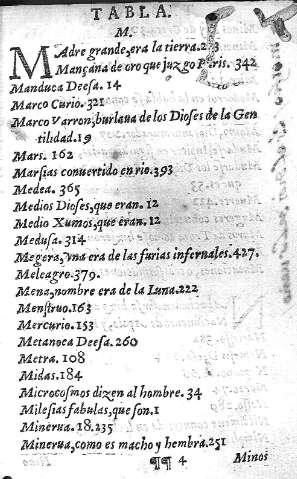 TABLA.
M.
MAdre grande, era la tierra. 273
Mançana de oro que juzgo Paris. 342
Manduca Deesa. 14
Marco Curio. 321
Marco Varron, burlaua de los Dioses de la Gen
tilidad. 19
Mars. 162
Marsias conuertido en rio. 393
Medea. 365
Medios Dioses, que eran. 12
Medio Xumos, que eran. 12
Medusa. 314
Megera, vna era de las furias infernales. 427.
Meleagro. 379.
Mena, nombre era de la Luna. 222
Menstruo. 163
Mercurio. 153
Metanoca Deesa. 260
Metra. 108
Midas. 184
Microcosmos dizen al hombre. 34
Milesias fabulas, que son. 1
Minerua. 18. 235
Minerua, como es macho y hembra. 251
¶¶ 4 Minos